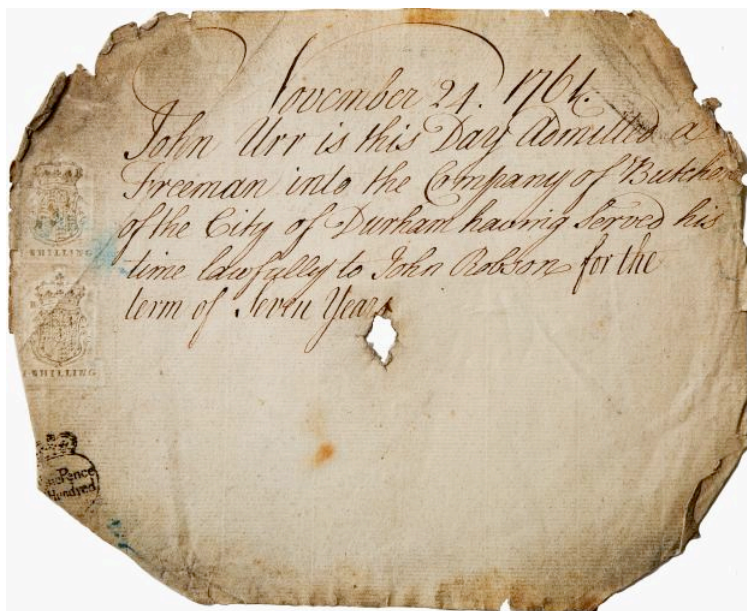 November 24. 1764.
John Urr is this Day Admitted a
Freeman into the Company of Butcher
of the City of Durham having Served his
time lawfully to John Robson for the
term of Seven Years
SHILLING
SHILLING
Pence
Hundred